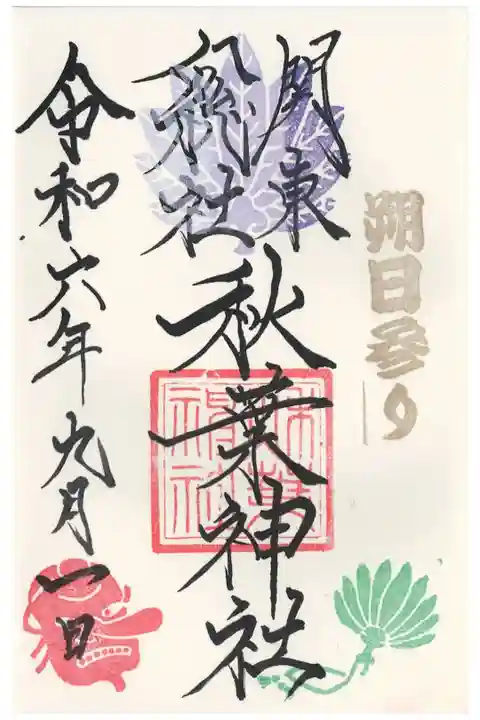 朔日参り
関東
社
秋葉神社
令和六年九月一日